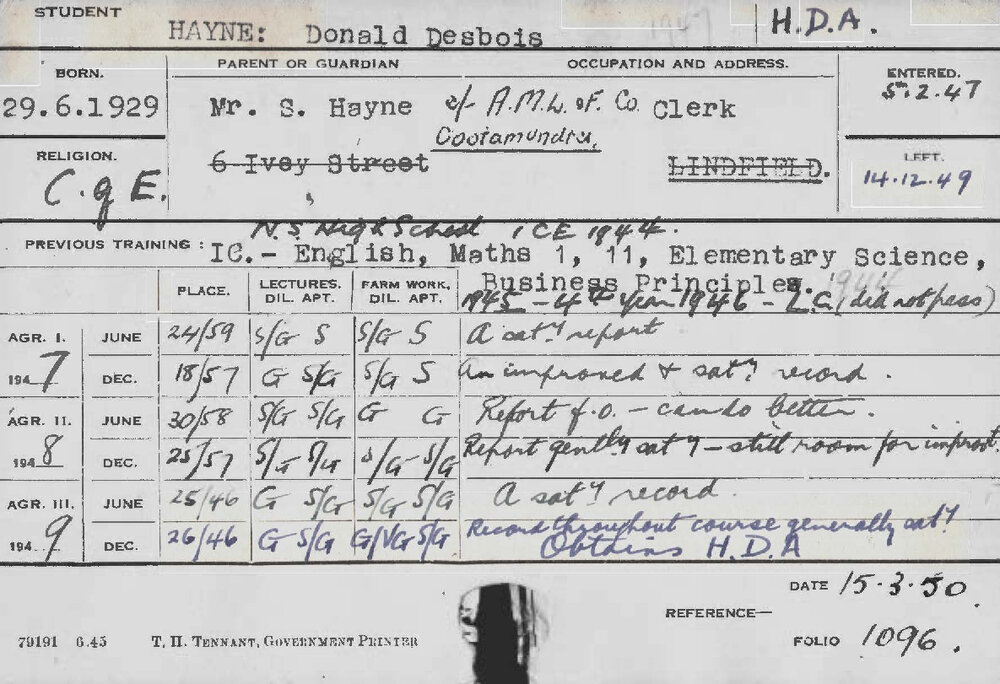 STUDENT
HAYNE: Donald Desbois 1947 H.D.A.
BORN. PARENT OR GUARDIAN OCCUPATION AND ADDRESS. ENTERED.
29.6.1929 Mr. S. Hayne c/- A.M.L. & F. Co. Clerk 5.2.47
Cootamundra,
RELIGION. 6 Ivey Street LINDFIELD. LEFT.
C. of E. 14.12.49
N.S. High School ICE 1944.
PREVIOUS TRAINING : IC.- English, Maths 1, 11, Elementary Science,
Business Principles. 1944
1945 - 4th year 1946 - L.C. (did not pass)
PLACE. LECTURES. DIL. APT. FARM WORK. DIL. APT.
AGR. I. JUNE 24/59 S/G S S/G S A sat.y report
1947 DEC. 18/57 G S/G S/G S An improved & sat.y record.
AGR. II. JUNE 30/58 S/G S/G G G Report f.o. - can do better.
1948 DEC. 25/57 S/G S/G S/G S/G Report genlly sat y - still room for improvt.
AGR. III. JUNE 25/46 G S/G S/G S/G A sat y record.
1949 DEC. 26/46 G S/G G/VG S/G Record throughout course generally sat y
Obtains H.D.A
DATE 15.3.50.
REFERENCE—
FOLIO 1096.
79191 6.45 T. H. TENNANT, GOVERNMENT PRINTER